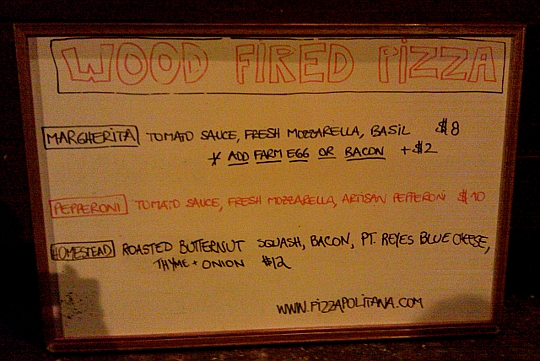 WOOD FIRED PIZZA
MARGHERITA TOMATO SAUCE, FRESH MOZZARELLA, BASIL $8
* ADD FARM EGG OR BACON +$2
PEPPERONI TOMATO SAUCE, FRESH MOZZARELLA, ARTISAN PEPPERONI $10
HOMESTEAD ROASTED BUTTERNUT SQUASH, BACON, PT. REYES BLUE CHEESE,
THYME + ONION $12
WWW.PIZZAPOLITANA.COM